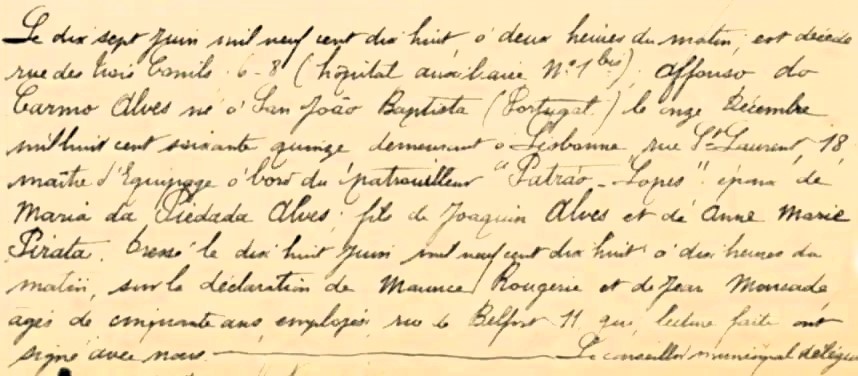 Le dix sept Juin mil neuf cent dix huit, à deux heures du matin, est décédé
rue des trois Conils 6-8 (hôpital auxiliaire N° 1 bis) Affonso do
Carmo Alves né à San João Baptista (Portugal) le onze Décembre
mil huit cent soixante quinze demeurant à Lisbonne, rue St Laurent, 18
maître d'Equipage à bord du patrouilleur "Patrão-Lopes" époux de
Maria da Piedada Alves; fils de Joaquin Alves et de Anne Marie
Pirata. Dressé le dix huit Juin mil neuf cent dix huit à dix heures du
matin, sur la déclaration de Maurice Rougerie et de Jean
âgés de cinquante ans, employés rue de Belfort 11 qui, lecture faite ont
signé avec nous. Le conseiller municipal délégué